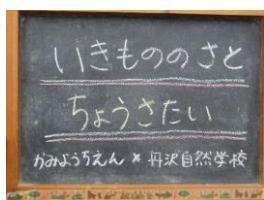 いきもののさと
ちょうさたい
かみようちえん × 丹沢自然学校